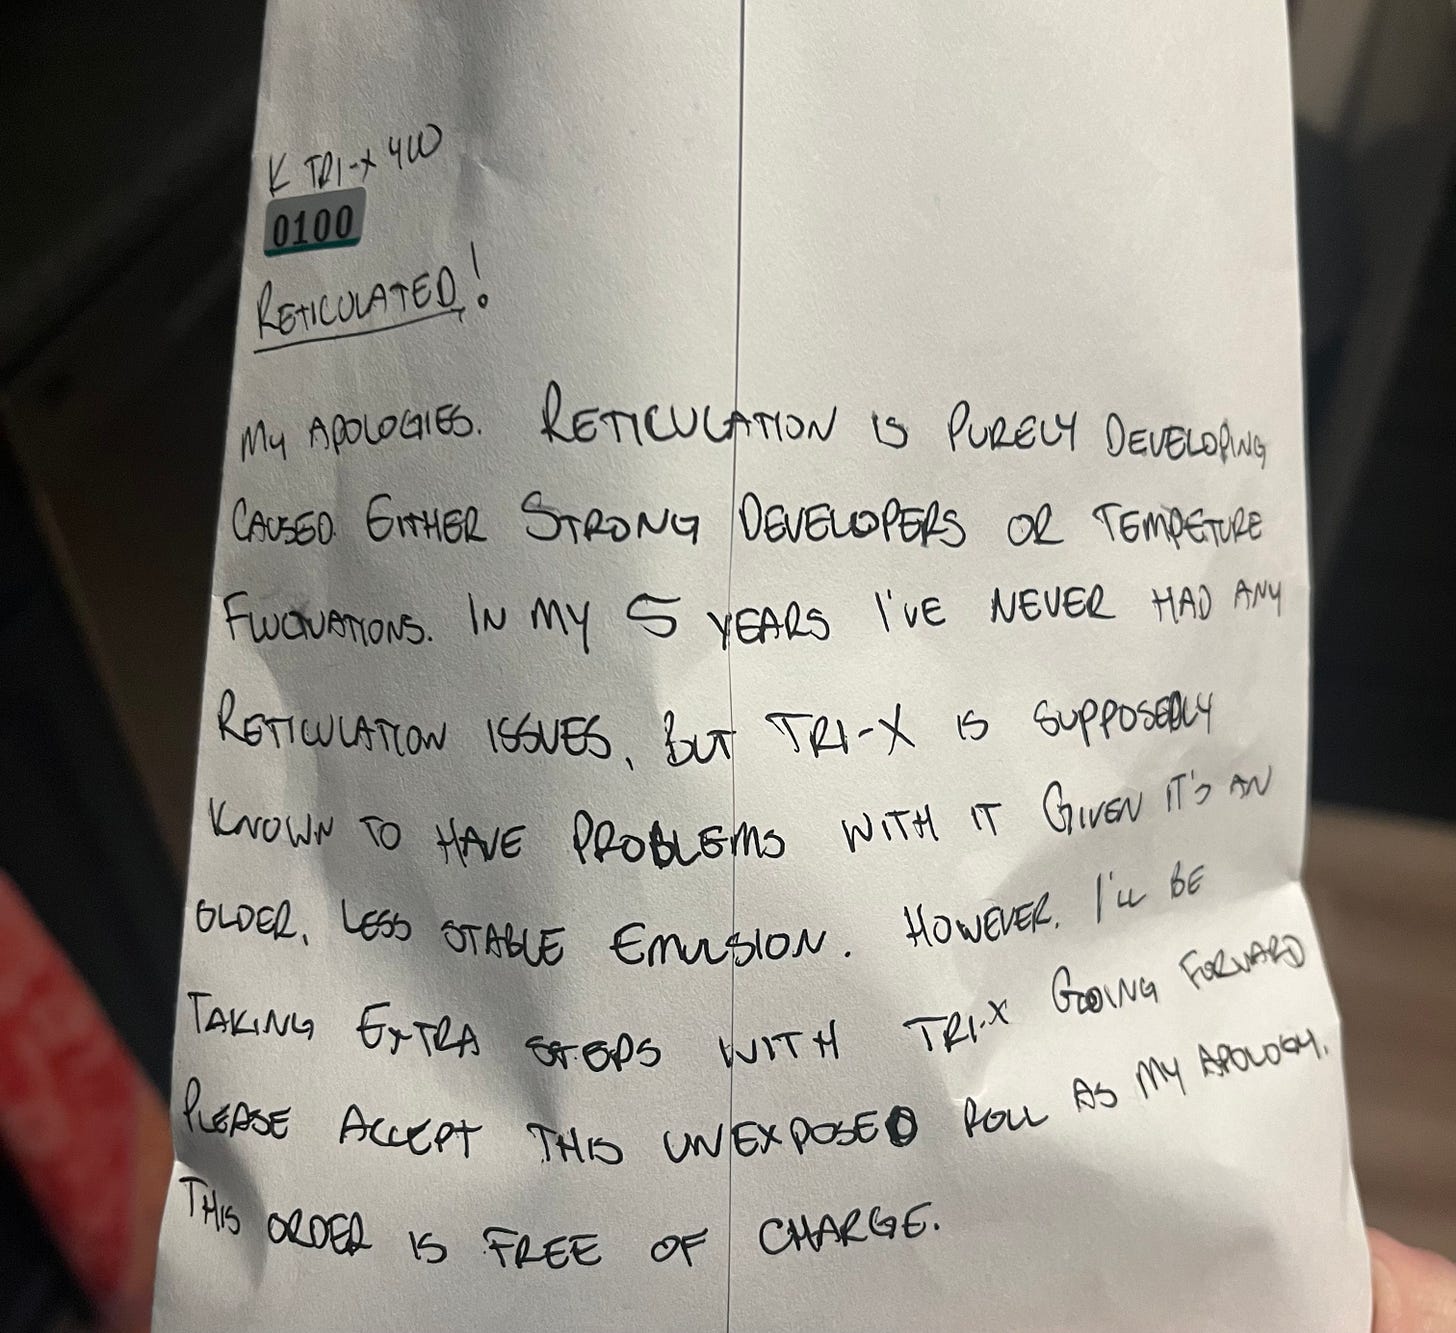 K TRI-X 400
0100
RETICULATED!
MY APOLOGIES. RETICULATION IS PURELY DEVELOPING
CAUSED. EITHER STRONG DEVELOPERS OR TEMPETURE
FLUCUATIONS. IN MY 5 YEARS I'VE NEVER HAD ANY
RETICULATION ISSUES, BUT TRI-X IS SUPPOSEDLY
KNOWN TO HAVE PROBLEMS WITH IT GIVEN IT'S AN
OLDER, LESS STABLE EMULSION. HOWEVER, I'LL BE
TAKING EXTRA STEPS WITH TRI-X GOING FORWARD
PLEASE ACCEPT THIS UNEXPOSED ROLL AS MY APOLOGY.
THIS ORDER IS FREE OF CHARGE.